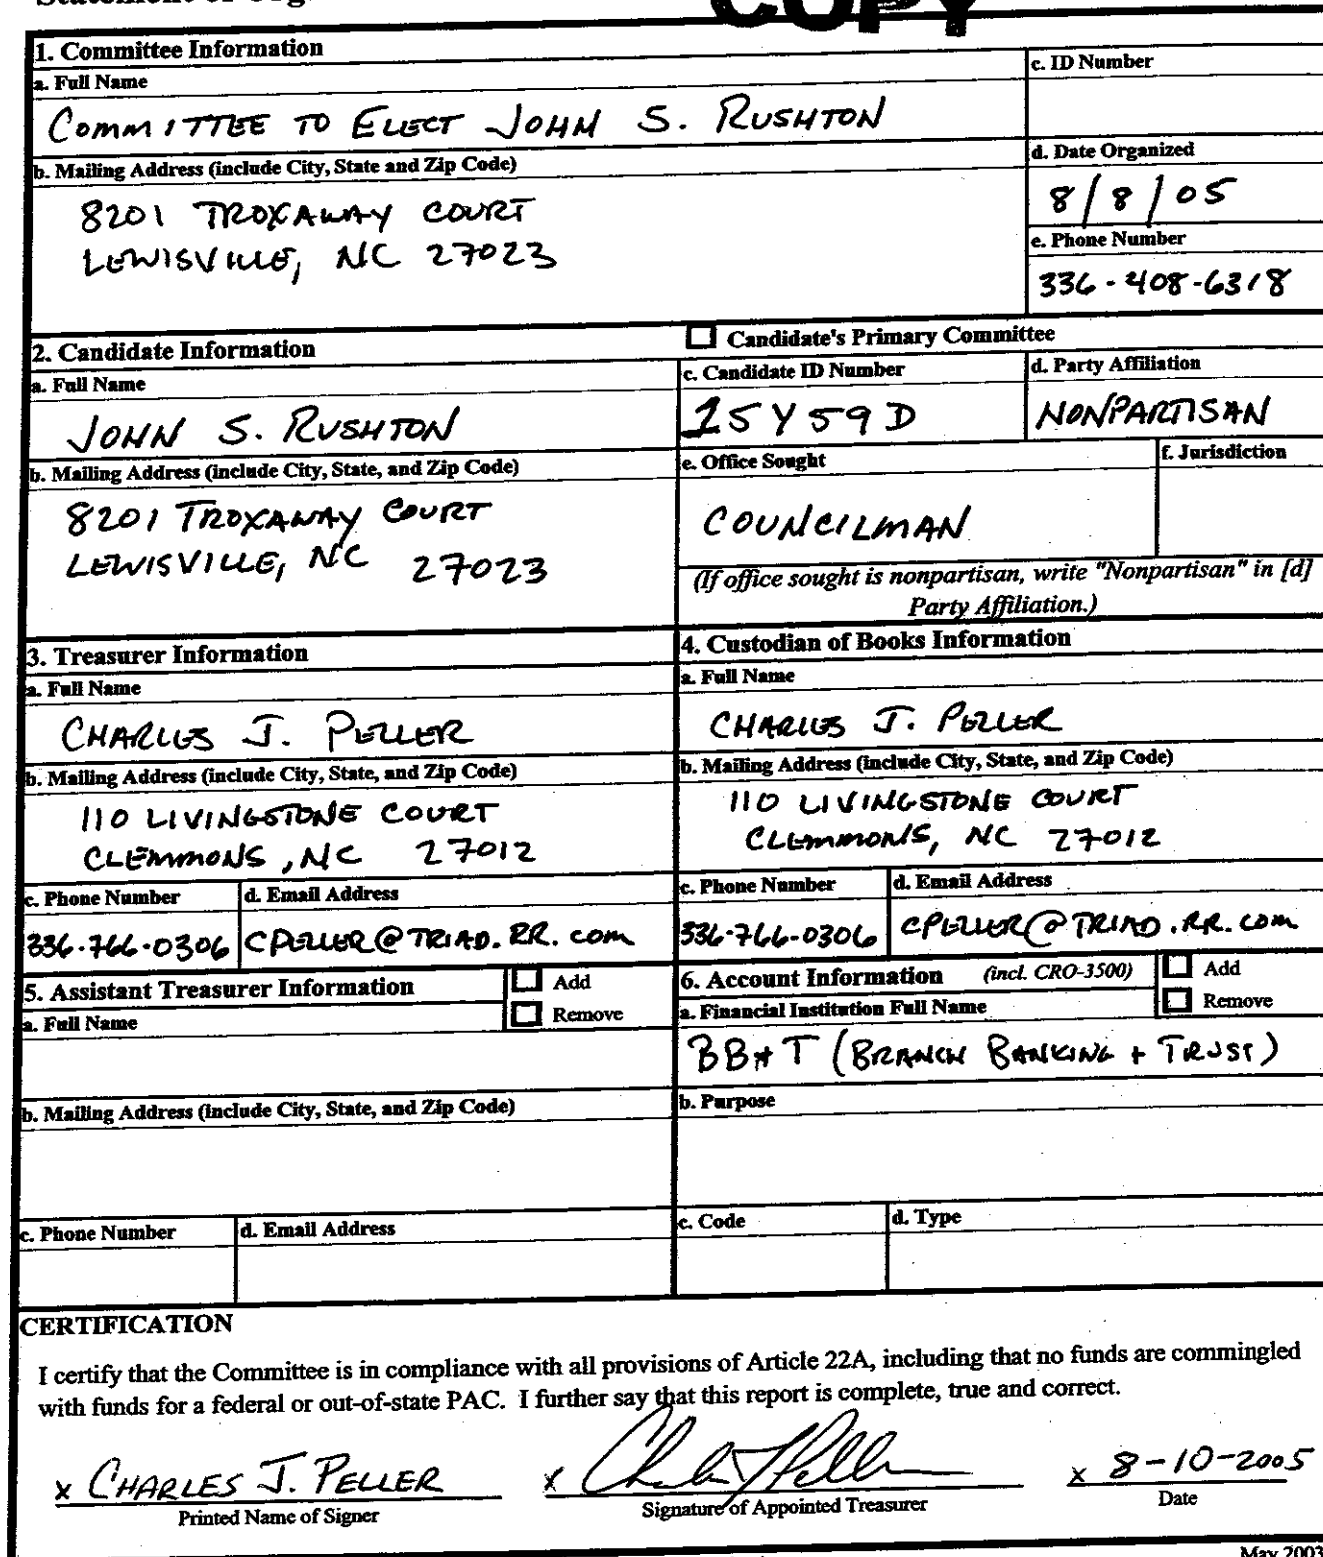 COPY
1. Committee Information
a. Full Name
c. ID Number
COMMITTEE TO ELECT JOHN S. RUSHTON
b. Mailing Address (include City, State and Zip Code)
d. Date Organized
8201 TROXAWAY COURT
LEWISVILLE, NC 27023
8/8/05
e. Phone Number
336-408-6318
2. Candidate Information
Candidate's Primary Committee
a. Full Name
c. Candidate ID Number
d. Party Affiliation
JOHN S. RUSHTON
15Y59D
NONPARTISAN
b. Mailing Address (include City, State, and Zip Code)
e. Office Sought
f. Jurisdiction
8201 TROXAWAY COURT
LEWISVILLE, NC 27023
COUNCILMAN
(If office sought is nonpartisan, write "Nonpartisan" in [d]
Party Affiliation.)
3. Treasurer Information
a. Full Name
CHARLES J. PELLER
b. Mailing Address (include City, State, and Zip Code)
110 LIVINGSTONE COURT
CLEMMONS, NC 27012
c. Phone Number
d. Email Address
336-766-0306
CPELLER@TRIAD.RR.COM
4. Custodian of Books Information
a. Full Name
CHARLES J. PELLER
b. Mailing Address (include City, State, and Zip Code)
110 LIVINGSTONE COURT
CLEMMONS, NC 27012
c. Phone Number
d. Email Address
336-766-0306
CPELLER@TRIAD.RR.COM
5. Assistant Treasurer Information
Add
Remove
a. Full Name
b. Mailing Address (include City, State, and Zip Code)
c. Phone Number
d. Email Address
6. Account Information (incl. CRO-3500)
Add
Remove
a. Financial Institution Full Name
BB&T (BRANCH BANKING + TRUST)
b. Purpose
c. Code
d. Type
CERTIFICATION
I certify that the Committee is in compliance with all provisions of Article 22A, including that no funds are commingled
with funds for a federal or out-of-state PAC. I further say that this report is complete, true and correct.
x CHARLES J. PELLER
x
x 8-10-2005
Printed Name of Signer
Signature of Appointed Treasurer
Date
May 2003